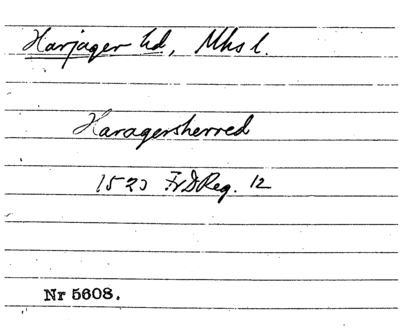 Harjager hd, Mhsl.
Haragersherred
1523 FrDReg. 12
Nr 5608.